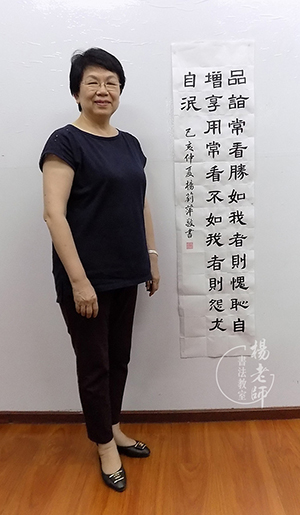 品詣常看勝如我者則愧恥自
增享用常看不如我者則怨尤
自泯
己亥仲夏楊莉萍敬書
楊老師
書法教室